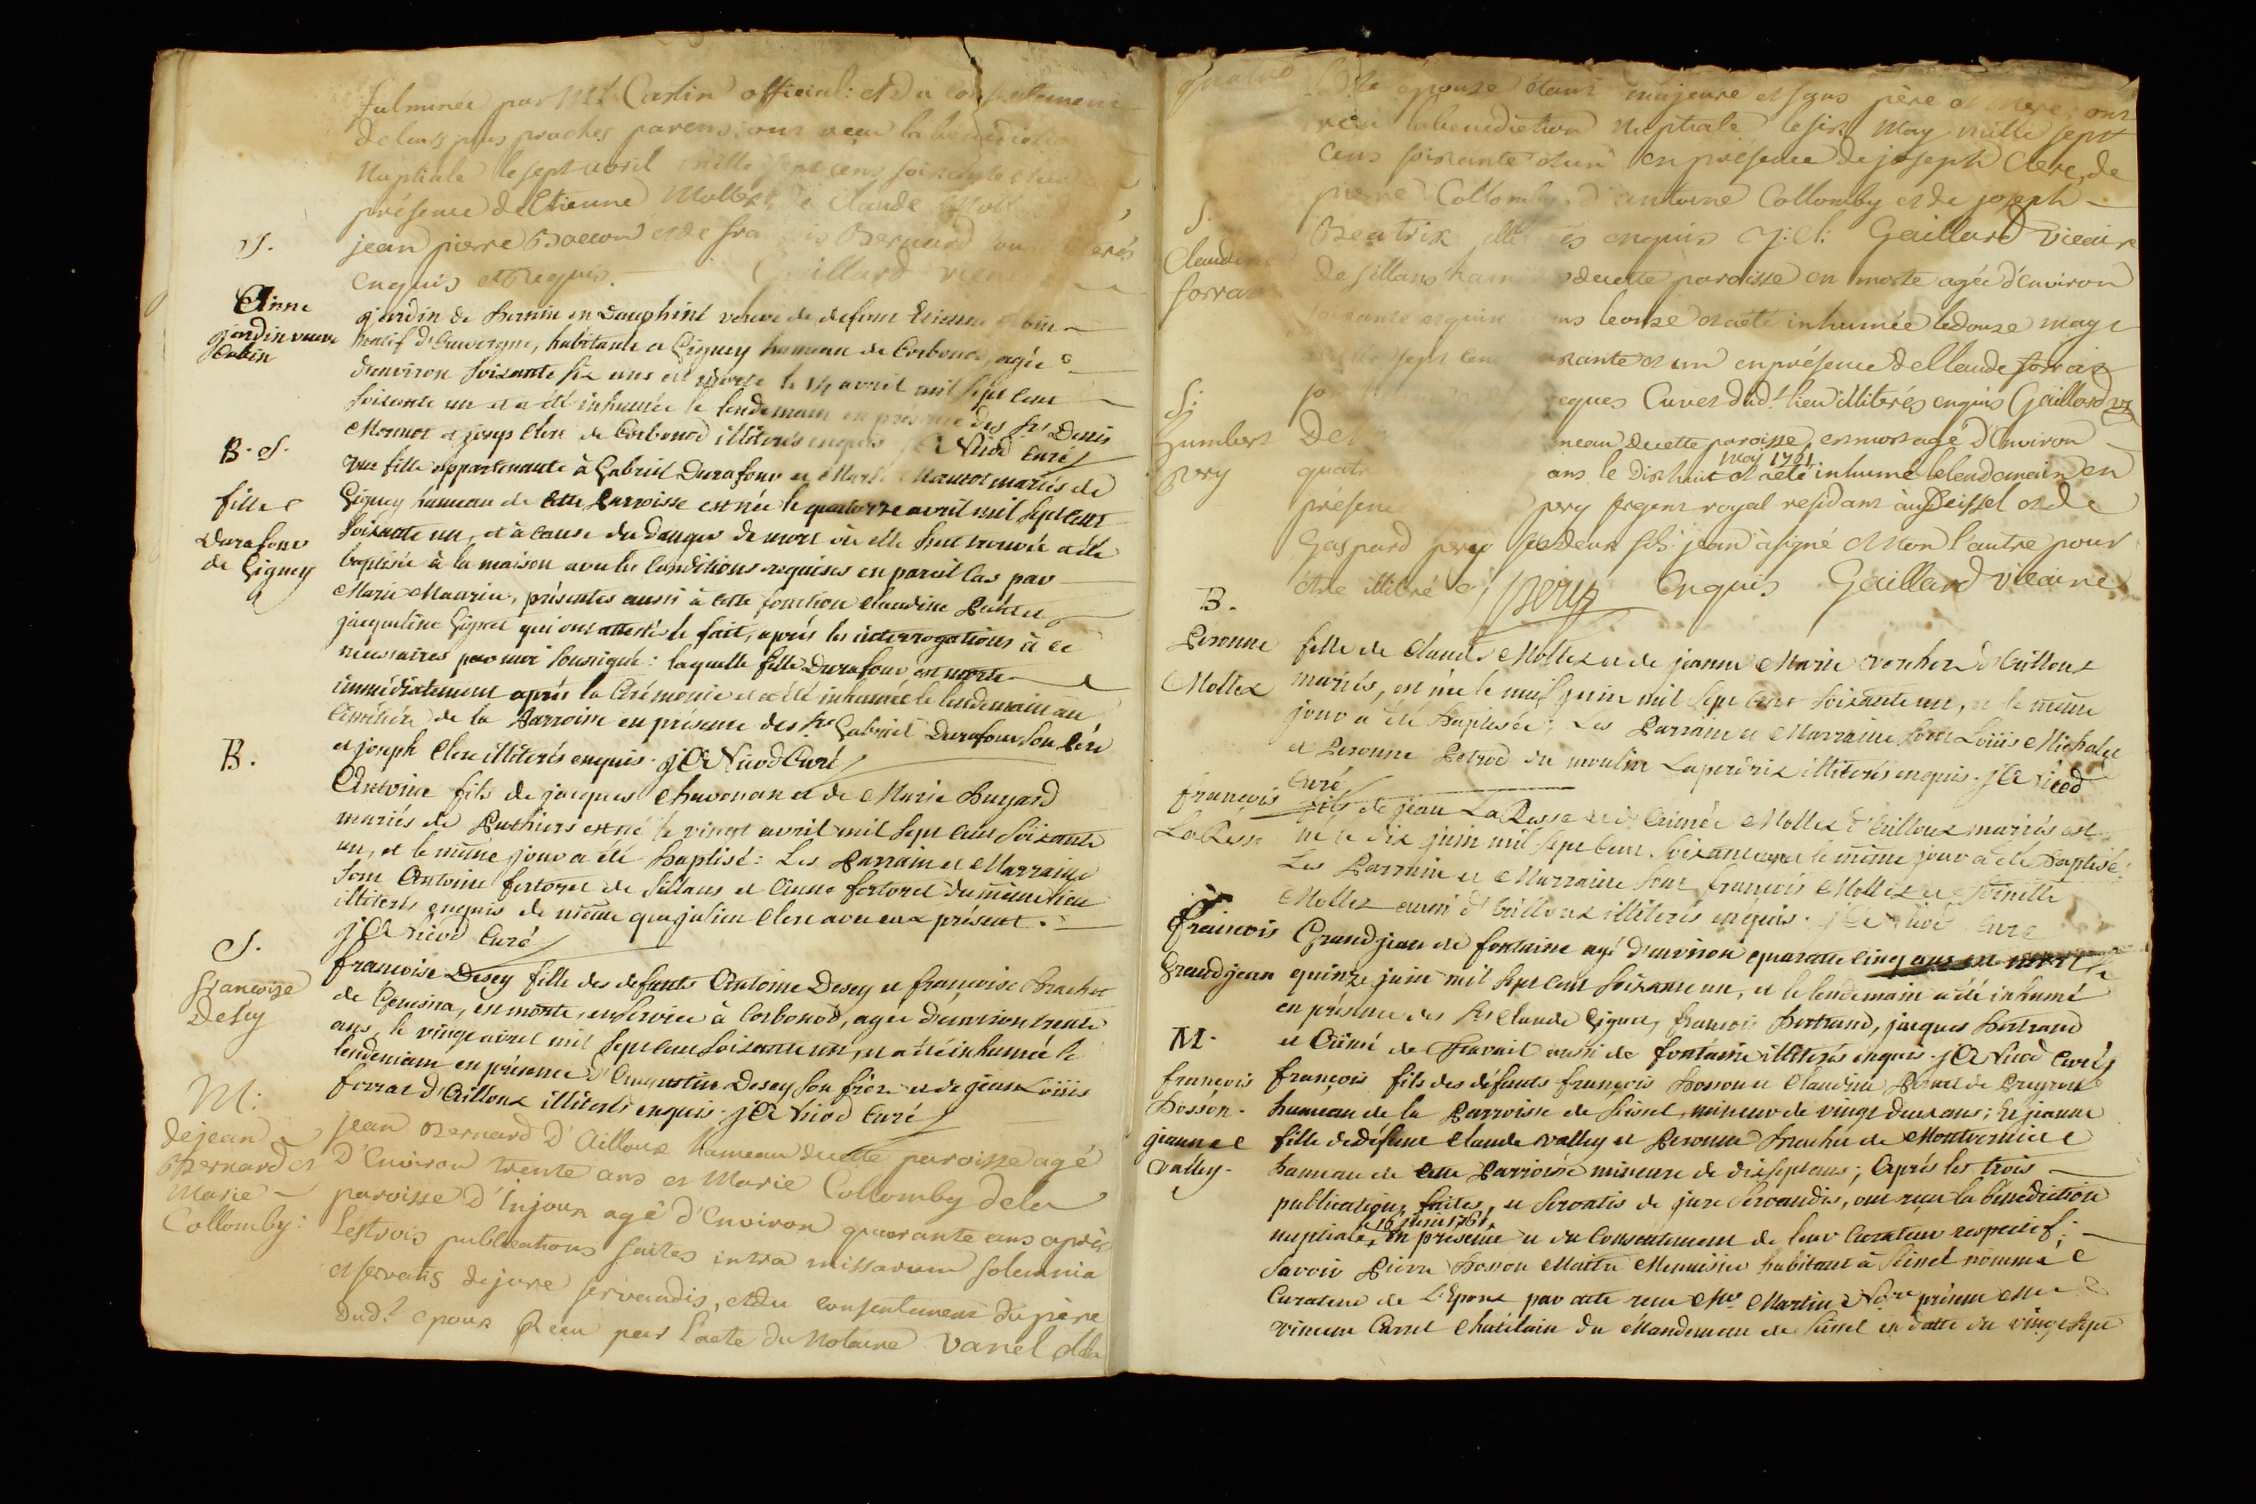 fulminée par Mr Carlin official: et du consentement
de leurs plus proches parens; ont reçu la bénédiction
Nuptiale le sept avril mille sept cens soixante et un
présence d'Etienne Mollex de Claude
jean pierre et de françois Bernard
enquis et requis. Gaillard vicaire
S.
Anne
jardin veuve
jardin de en Dauphiné veuve de defunt Etienne
natif d'Auvergne, habitante a Gignez hameau de Corbonod, agée
d'environ soixante six ans est morte le 14 avril mil sept cent
soixante un et a été inhumée le lendemain en présence des Srs Denis
Monnet et josep Clerc de Corbonod illiterés enquis jA Nicod Curé
B. S.
fille
Durafour
de Gignez
une fille appartenante à Gabriel Durafour et mariés de
Gignez hameau de cette Parroisse est née le quatorze avril mil sept cent
soixante un, et à cause du danger de mort où elle s'est trouvée a été
baptisée à la maison avec les conditions requises en pareil cas par
Marie Maurier, présentes aussi à cette fonction Claudine
jacqueline Gignez qui ont attesté le fait, aprés les interrogations à ce
necessaires par moi soussigné: laquelle fille Durafour est morte
immédiatement aprés la cérémonie et a été inhumée le lendemain au
Cimétiére de la Parroisse en présence des Srs Gabriel Durafour son Pére
et joseph Clerc illiterés enquis. jA Nicod Curé
B.
Antoine fils de jacques Chavonan et de Marie Bugard
mariés de Puthiers est né le vingt avril mil sept cent soixante
un, et le même jour a été baptisé: Les Parrain et Marraine
sont Antoine fertoret de Sillans et Anne fertoret du même lieu
illiterés enquis de même que julien Clerc avec eux présent.
jA Nicod Curé
S.
françoise
Desey
françoise Desey fille des defunts Antoine Desey et françoise Brachet
de, est morte, en service à Corbonod, agée d'environ trente
ans, le vingt avril mil sept cent soixante un, et a été inhumée le
lendemain en présence d'Augustin Desey son frére et de jean Loüis
forrat d'Eilloux illiterés enquis. jA Nicod Curé
M:
de jean
Bernard et
Marie
Collomby:
jean Bernard D'Eilloux hameau de cette paroisse agé
D'Environ trente ans et Marie Collomby de la
paroisse d'Injoux agé d'environ quarante ans aprés
les trois publications faites intra missarum solemnia
et servatis de jure servandis, et du consentement du père
dud.t epoux Reçu par l'acte du Notaire Vanel, et la
D.te épouse étant majeure et sans père et mere; ont
reçu la benediction Nuptiale le six May mille sept
cens soixante et un en présence de joseph Clerc, de
pierre Collomby, d'antoine Collomby et de joseph
Beatrix enquis J: Cl: Gaillard Vicaire
S.
Claudine
forrat
de Sillans hameau de cette paroisse en morte agée d'environ
ans le onze et a été inhumée le douze may
sept cent soixante et un en présence de Claude forrat
jacques Cuvet dud.t lieu illitérés enquis Gaillard
S:
Humbert
pery
De
hameau de cette paroisse, est mort agé d'Environ
quatr ans le Dix huit May 1761 et a été inhumé le lendemain en
présence pery sergent royal residant au Seissel et de
Gaspard pery ses deux fils jean a signé et non l'autre pour
être illitéré Pery Enquis Gaillard Vicaire
B.
Peronne
Mollex
fille de Claude Mollex et de jeanne Marie d'Eilloux
mariés, est née le neuf juin mil sept cent soixante un, et le même
jour a été baptisée; Les Parrain et Marraine sont Loüis Michalet
et Peronne du moulin Laperiére illiterés enquis. jA Nicod
Curé
françois
LaRasse
fils de jean LaRasse et d'Aimée Mollex d'Eilloux mariés est
né le dix juin mil sept cent soixante un et le même jour a été baptisé:
Les Parrain et Marraine sont françois Mollex et
Mollex aussi d'Eilloux illiterés enquis. jA Nicod Curé
S.
françois
Grandjean
Grandjean de fontaine agé d'environ quarante cinq ans est mort le
quinze juin mil sept cent soixante un, et le lendemain a été inhumé
en présence des Srs Claude Gignez, françois Bertrand, jacques Bertrand
et Aimé de Travail aussi de fontaine illiterés enquis. jA Nicod Curé
M.
françois
Bosson.
jeanne
Valley.
françois fils des défunts françois Bosson et Claudine
hameau de la Parroisse de Seissel, mineur de vingt deux ans; Et jeanne
fille de défunt Claude Valley et Peronne Brachet de
hameau de cette Parroisse mineure de dix sept ans; Aprés les trois
publications faites, et servatis de jure servandis, ont reçu la bénédiction
nuptiale, le 16 juin 1761, en présence et du Consentement de leur Curateur respectif;
savoir Pierre Bosson Maitre Menuisier habitant à Seissel nommé
Curateur de L'Epoux par acte reçu Me Martin Nore pardevant Me
vincent Carrel Châtelain du Mandement de Seissel en datte du vingt sept